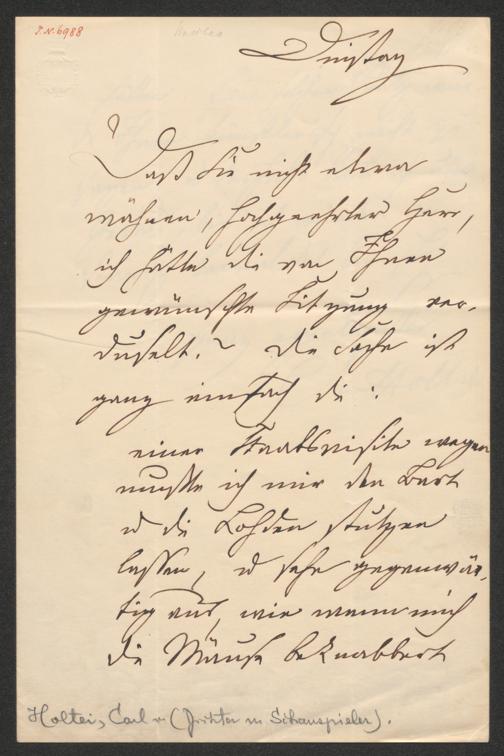 I.N. 6988
Dinstag
Daß Sie nicht etwa
wähnen, hochgeehrter Herr,
ich hätte die von Ihnen
gewünschte Sitzung ver-
duselt. Die Sache ist
ganz einfach die:
einer Staatsvisite wegen
mußte ich mir den Bart
u die Lohden stutzen
lassen, u sehe gegenwär-
tig aus, wie wenn mich
die Mäuse beknabbert
Holtei, Carl v (Dichter u Schauspieler).